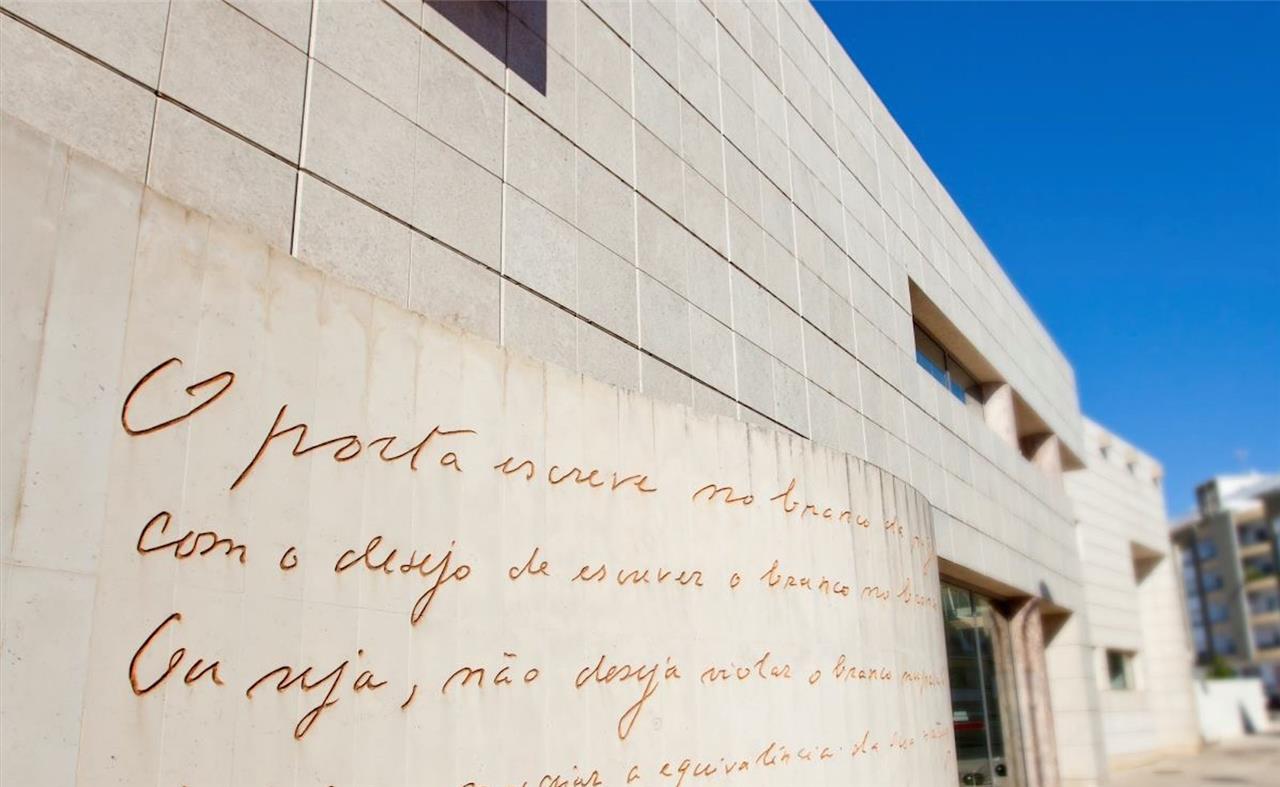 O poeta escreve no branco da
com o desejo de escrever o branco no
Ou seja, não deseja violar o branco
criar a equivalência da sua